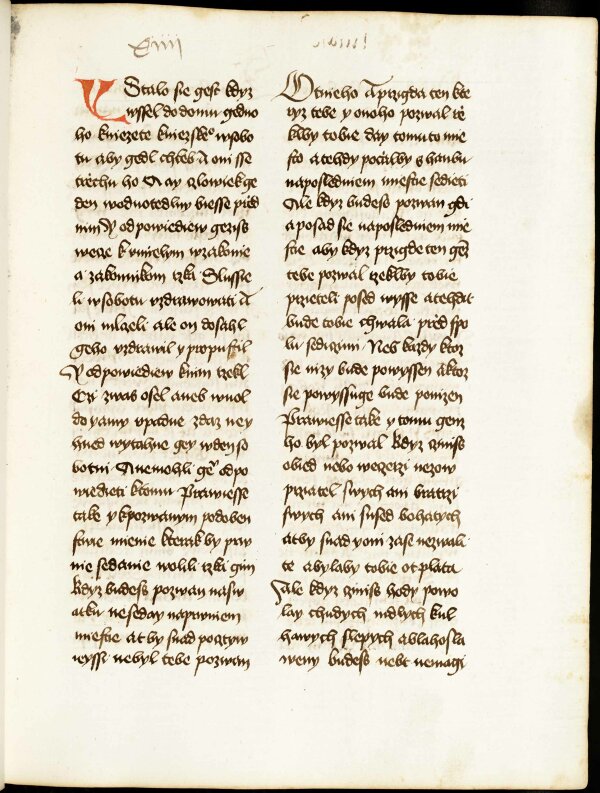 xiiii
Stalo sie gest kdyz
wssel do domu gedno
ho kniezete kniezske° w sobo
tu aby gedl chleb A oni sse
trzechu ho A ay czlowiek ge
den wodnotedlny biesse przed
nim Y odpowiediew geziss
wece k umielym w zakonie
a zakonnikom rzka Slussie
li w sobotu uzdrawowati A
oni mlczeli ale on dosahl
geho uzdrawil y propustil
Y odpowiediew k nim rzekl
Czi z was osel aneb wuol
do yamy upadne zdaz ney
hned wytahne gey w den so
botni A nemohli ge° odpo
wiedieti k tomu Prawiesse
take y k pozwanym podoben
stwie mienie kterak by prw
nie sedanie wolili rzka gim
Kdyz budess pozwan na sw
atku ne seday na prwniem
miestie at by snad pocztyw
ieyssi nebyl tebe pozwan
Ot nieho A przigda ten kte
ryz tebe y onoho pozwal rze
kl by tobie day tomuto mie
sto a tehdy poczal by s hanbu
na posledniem miestie sedieti
Ale kdyz budess pozwan gdi
a posad sie na posledniem mie
stie aby kdyz przigde ten genz
tebe pozwal rzekl by tobie
przieteli posed wysse a tehdat
bude tobie chwala przed spo
lu sediczimi Neb kazdy ktoz
sie nizy bude powyssen a ktoz
sie powyssuge bude ponizen
Prawiesse take y tomu genz
ho byl pozwal Kdyz czniss
obied nebo weczerzi nezow
przatel swych ani bratrzi
swych ani sused bohatych
at by snad y oni zase nezwali
te a byla by tobie otplata
Ale kdyz czniss hody powo
lay chudych mdlych kul
hawych slepych a blahosla
weny budess nebt nemagi